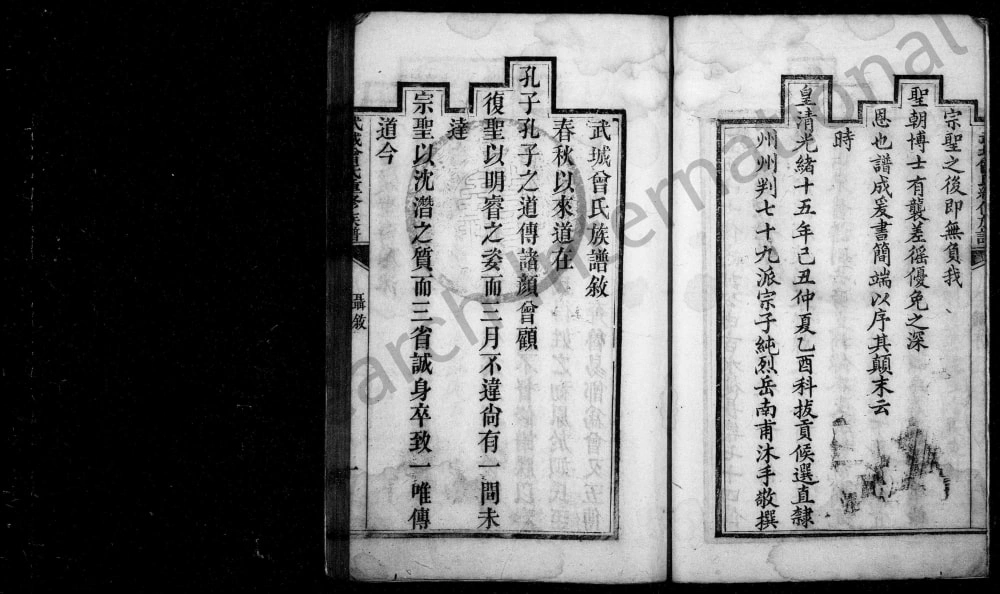 宗聖之後即無負我
聖朝博士有襲差徭優免之深
恩也譜成爰書簡端以序其顛末云
時
皇清光緒十五年己丑仲夏乙酉科拔貢候選直隸
州州判七十九派宗子純烈岳南甫沐手敬撰
武城曾氏族譜敘
春秋以來道在
孔子孔子之道傳諸顏曾顧
復聖以明睿之姿而三月不違尙有一間未
達
宗聖以沈潛之質而三省誠身卒致一唯傳
道今
武城曾氏重修族譜
聶敘
一
archi
ernational